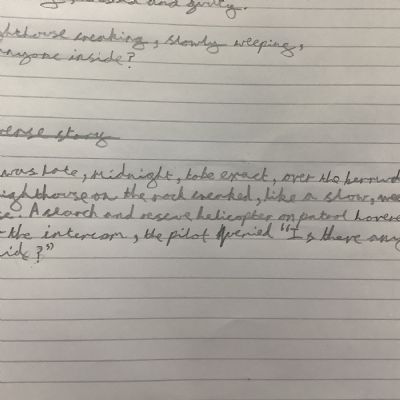 and guilty.
ghthouse creaking, slowly weeping,
anyone inside?
ense story
was late, midnight, to be exact, over the bermud
lighthouse on the rock creaked, like a slow, wee
se. A search and rescue helicopter on patrol hovere
the intercom, the pilot queried "Is there any
side?"